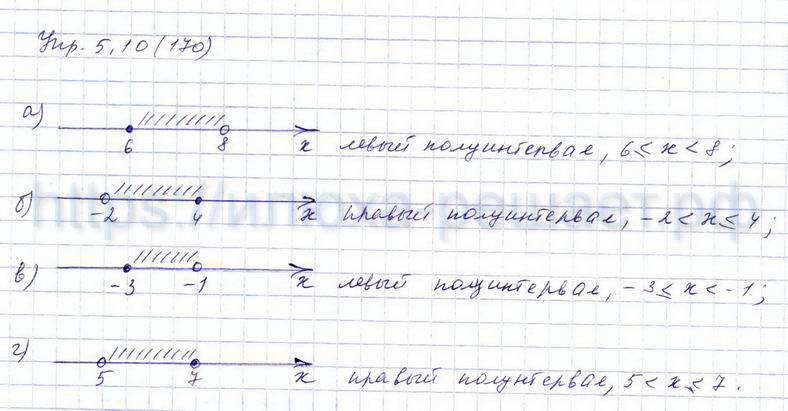 Упр. 5,10 (170)
а) 6 8 x левый полуинтервал, 6 ≤ x < 8;
б) -2 4 x правый полуинтервал, -2 < x ≤ 4;
в) -3 -1 x левый полуинтервал, -3 ≤ x < -1;
г) 5 7 x правый полунтервал, 5 < x ≤ 7.